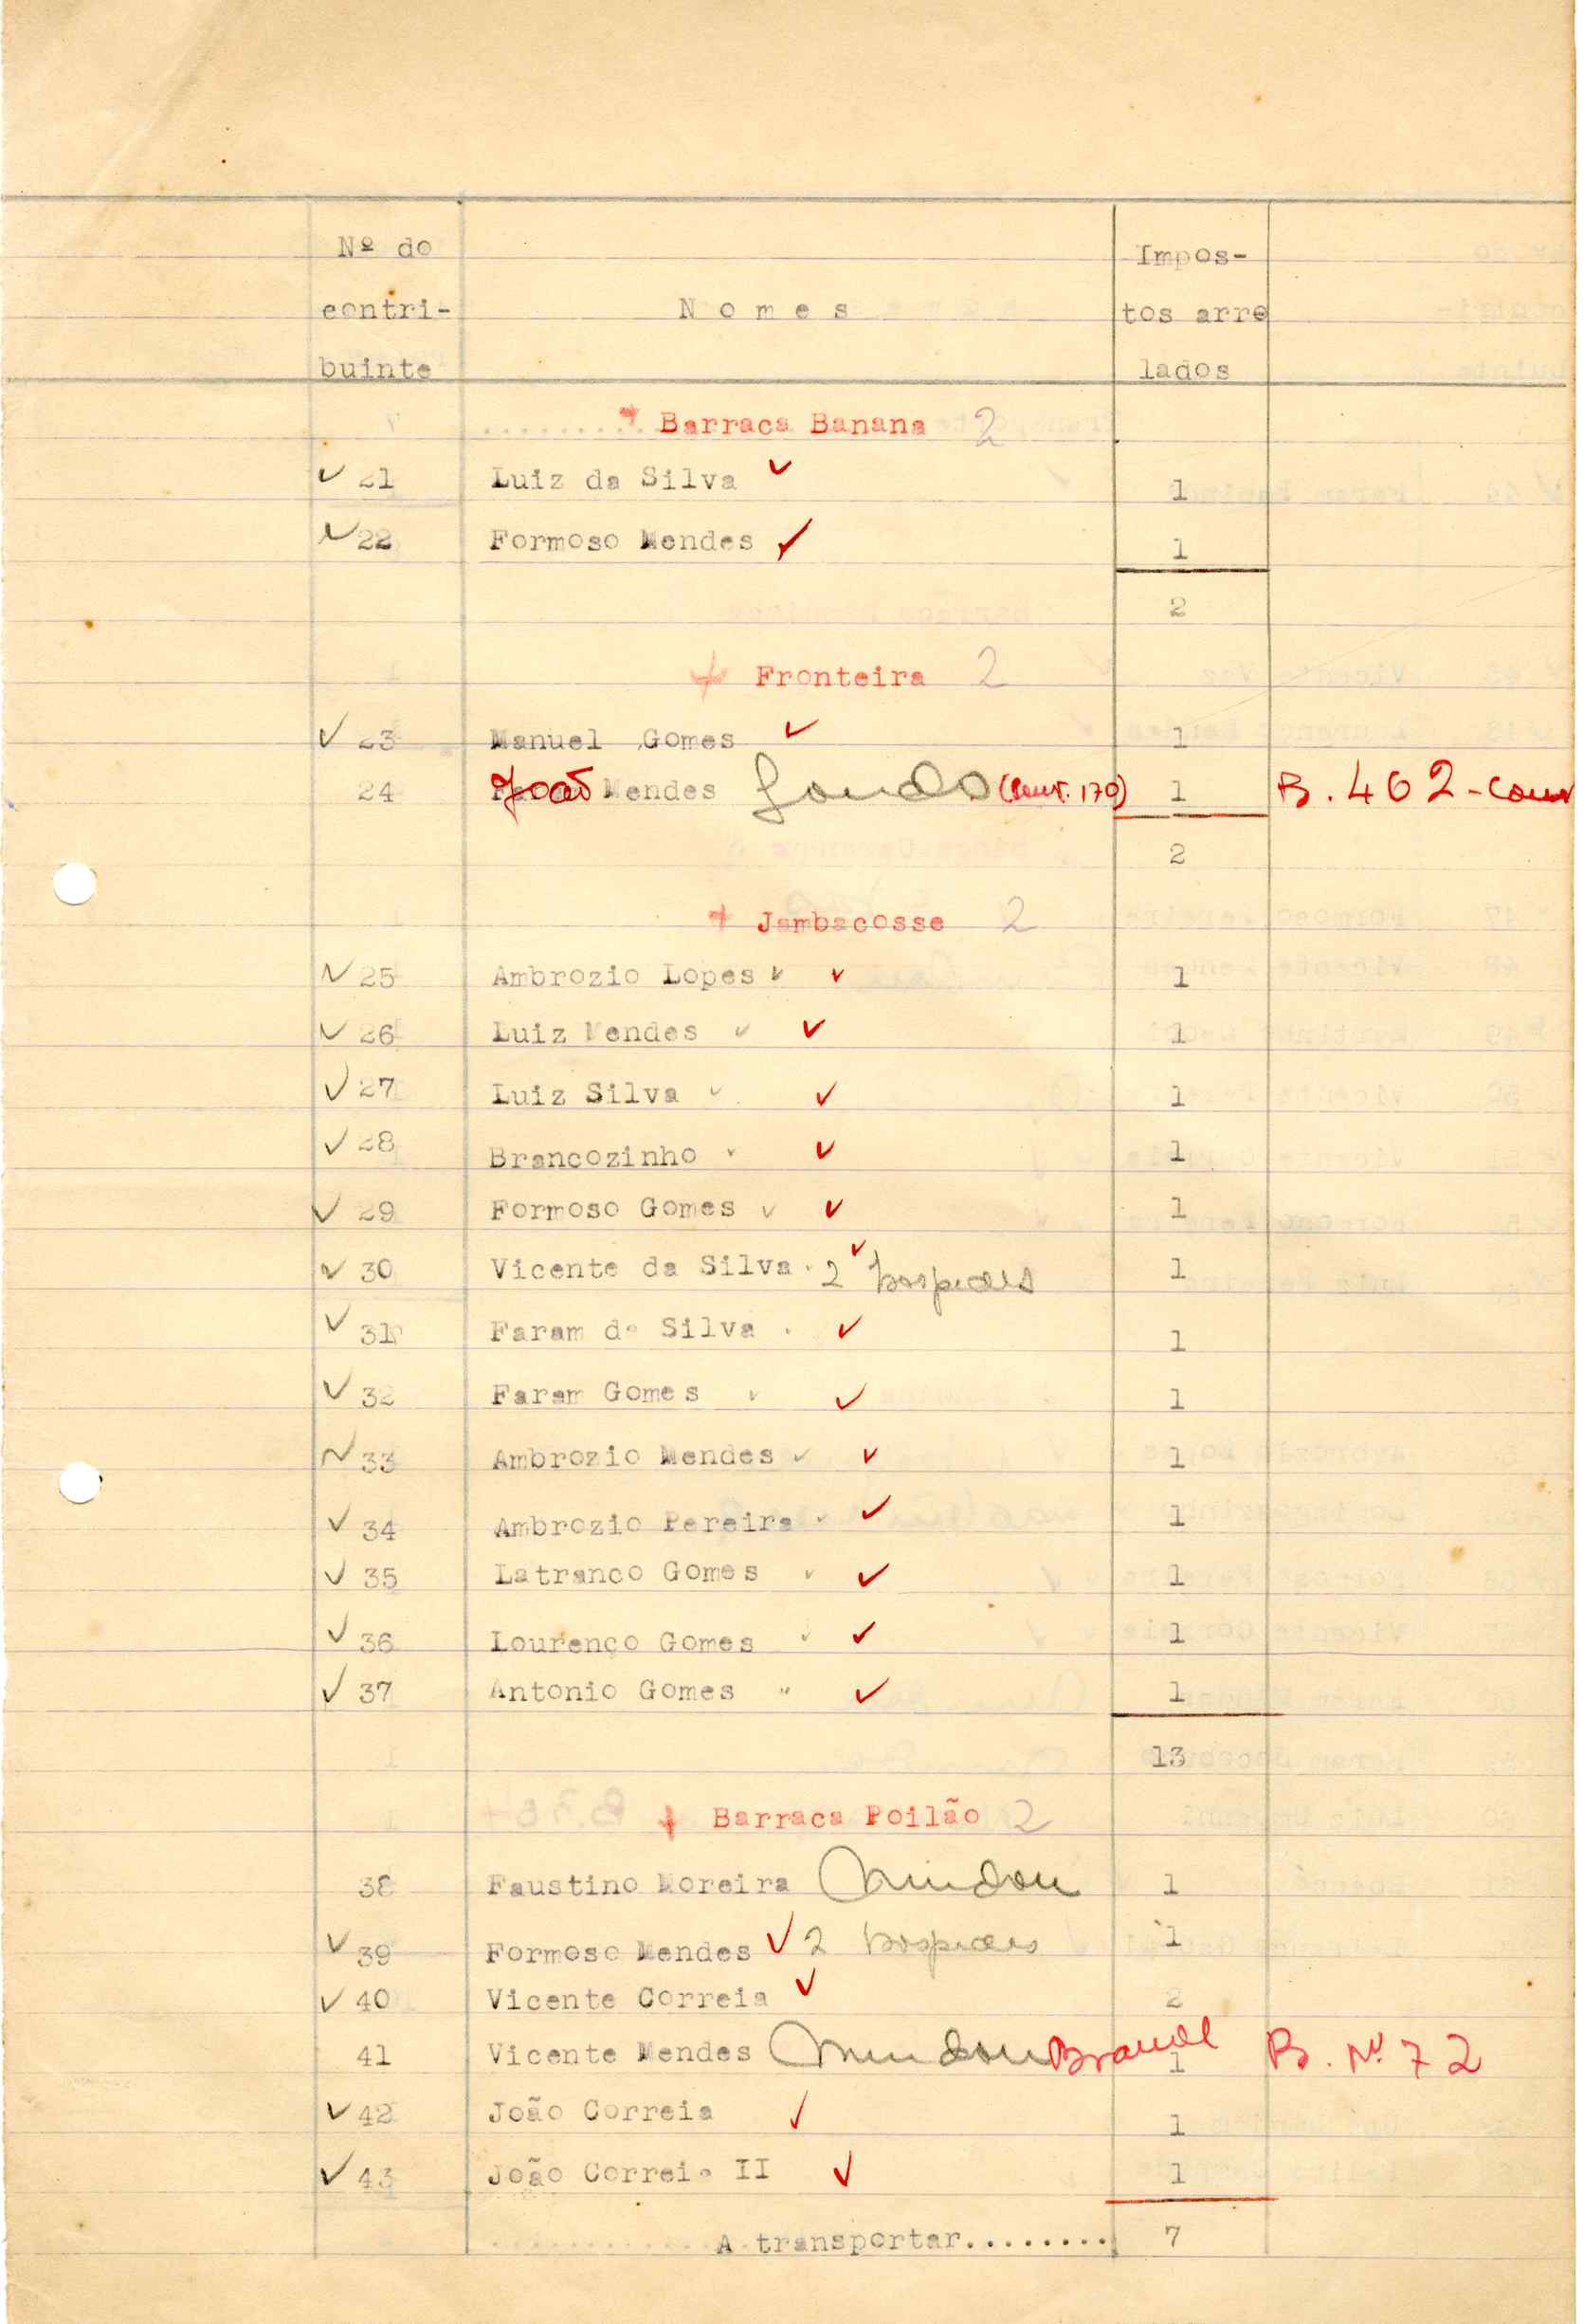 Nº do
contri-
buinte
N o m e s
Impos-
tos arre
lados
Barraca Banana 2
21 Luiz da Silva 1
22 Formoso Mendes 1
2
Fronteira 2
23 Manuel Gomes 1
24 João Mendes 1 B. 462 -
2
Jambacosse 2
25 Ambrozio Lopes 1
26 Luiz Mendes 1
27 Luiz Silva 1
28 Brancozinho 1
29 Formoso Gomes 1
30 Vicente da Silva 2 hospedes 1
31 Faram da Silva 1
32 Faram Gomes 1
33 Ambrozio Mendes 1
34 Ambrozio Pereira 1
35 Latranco Gomes 1
36 Lourenço Gomes 1
37 Antonio Gomes 1
13
Barraca Poilão 2
38 Faustino Moreira Mudou 1
39 Formoso Mendes 2 hospedes 1
40 Vicente Correia 2
41 Vicente Mendes Mudou 1 B. Nº 72
42 João Correia 1
43 João Correia II 1
A transportar........ 7